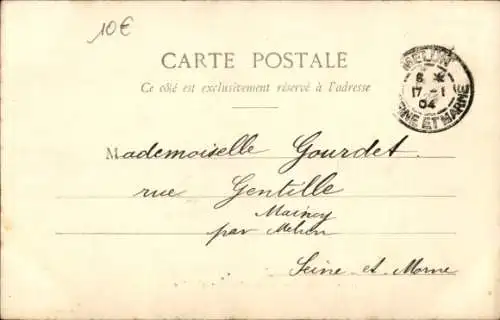 10€
CARTE POSTALE
Ce côté est exclusivement réservé à l'adresse
MELUN
8
17 - 1
04
SEINE ET MARNE
Mademoiselle Gourdet.
rue Gentille
Maincy
par Melun
Seine-et-Marne